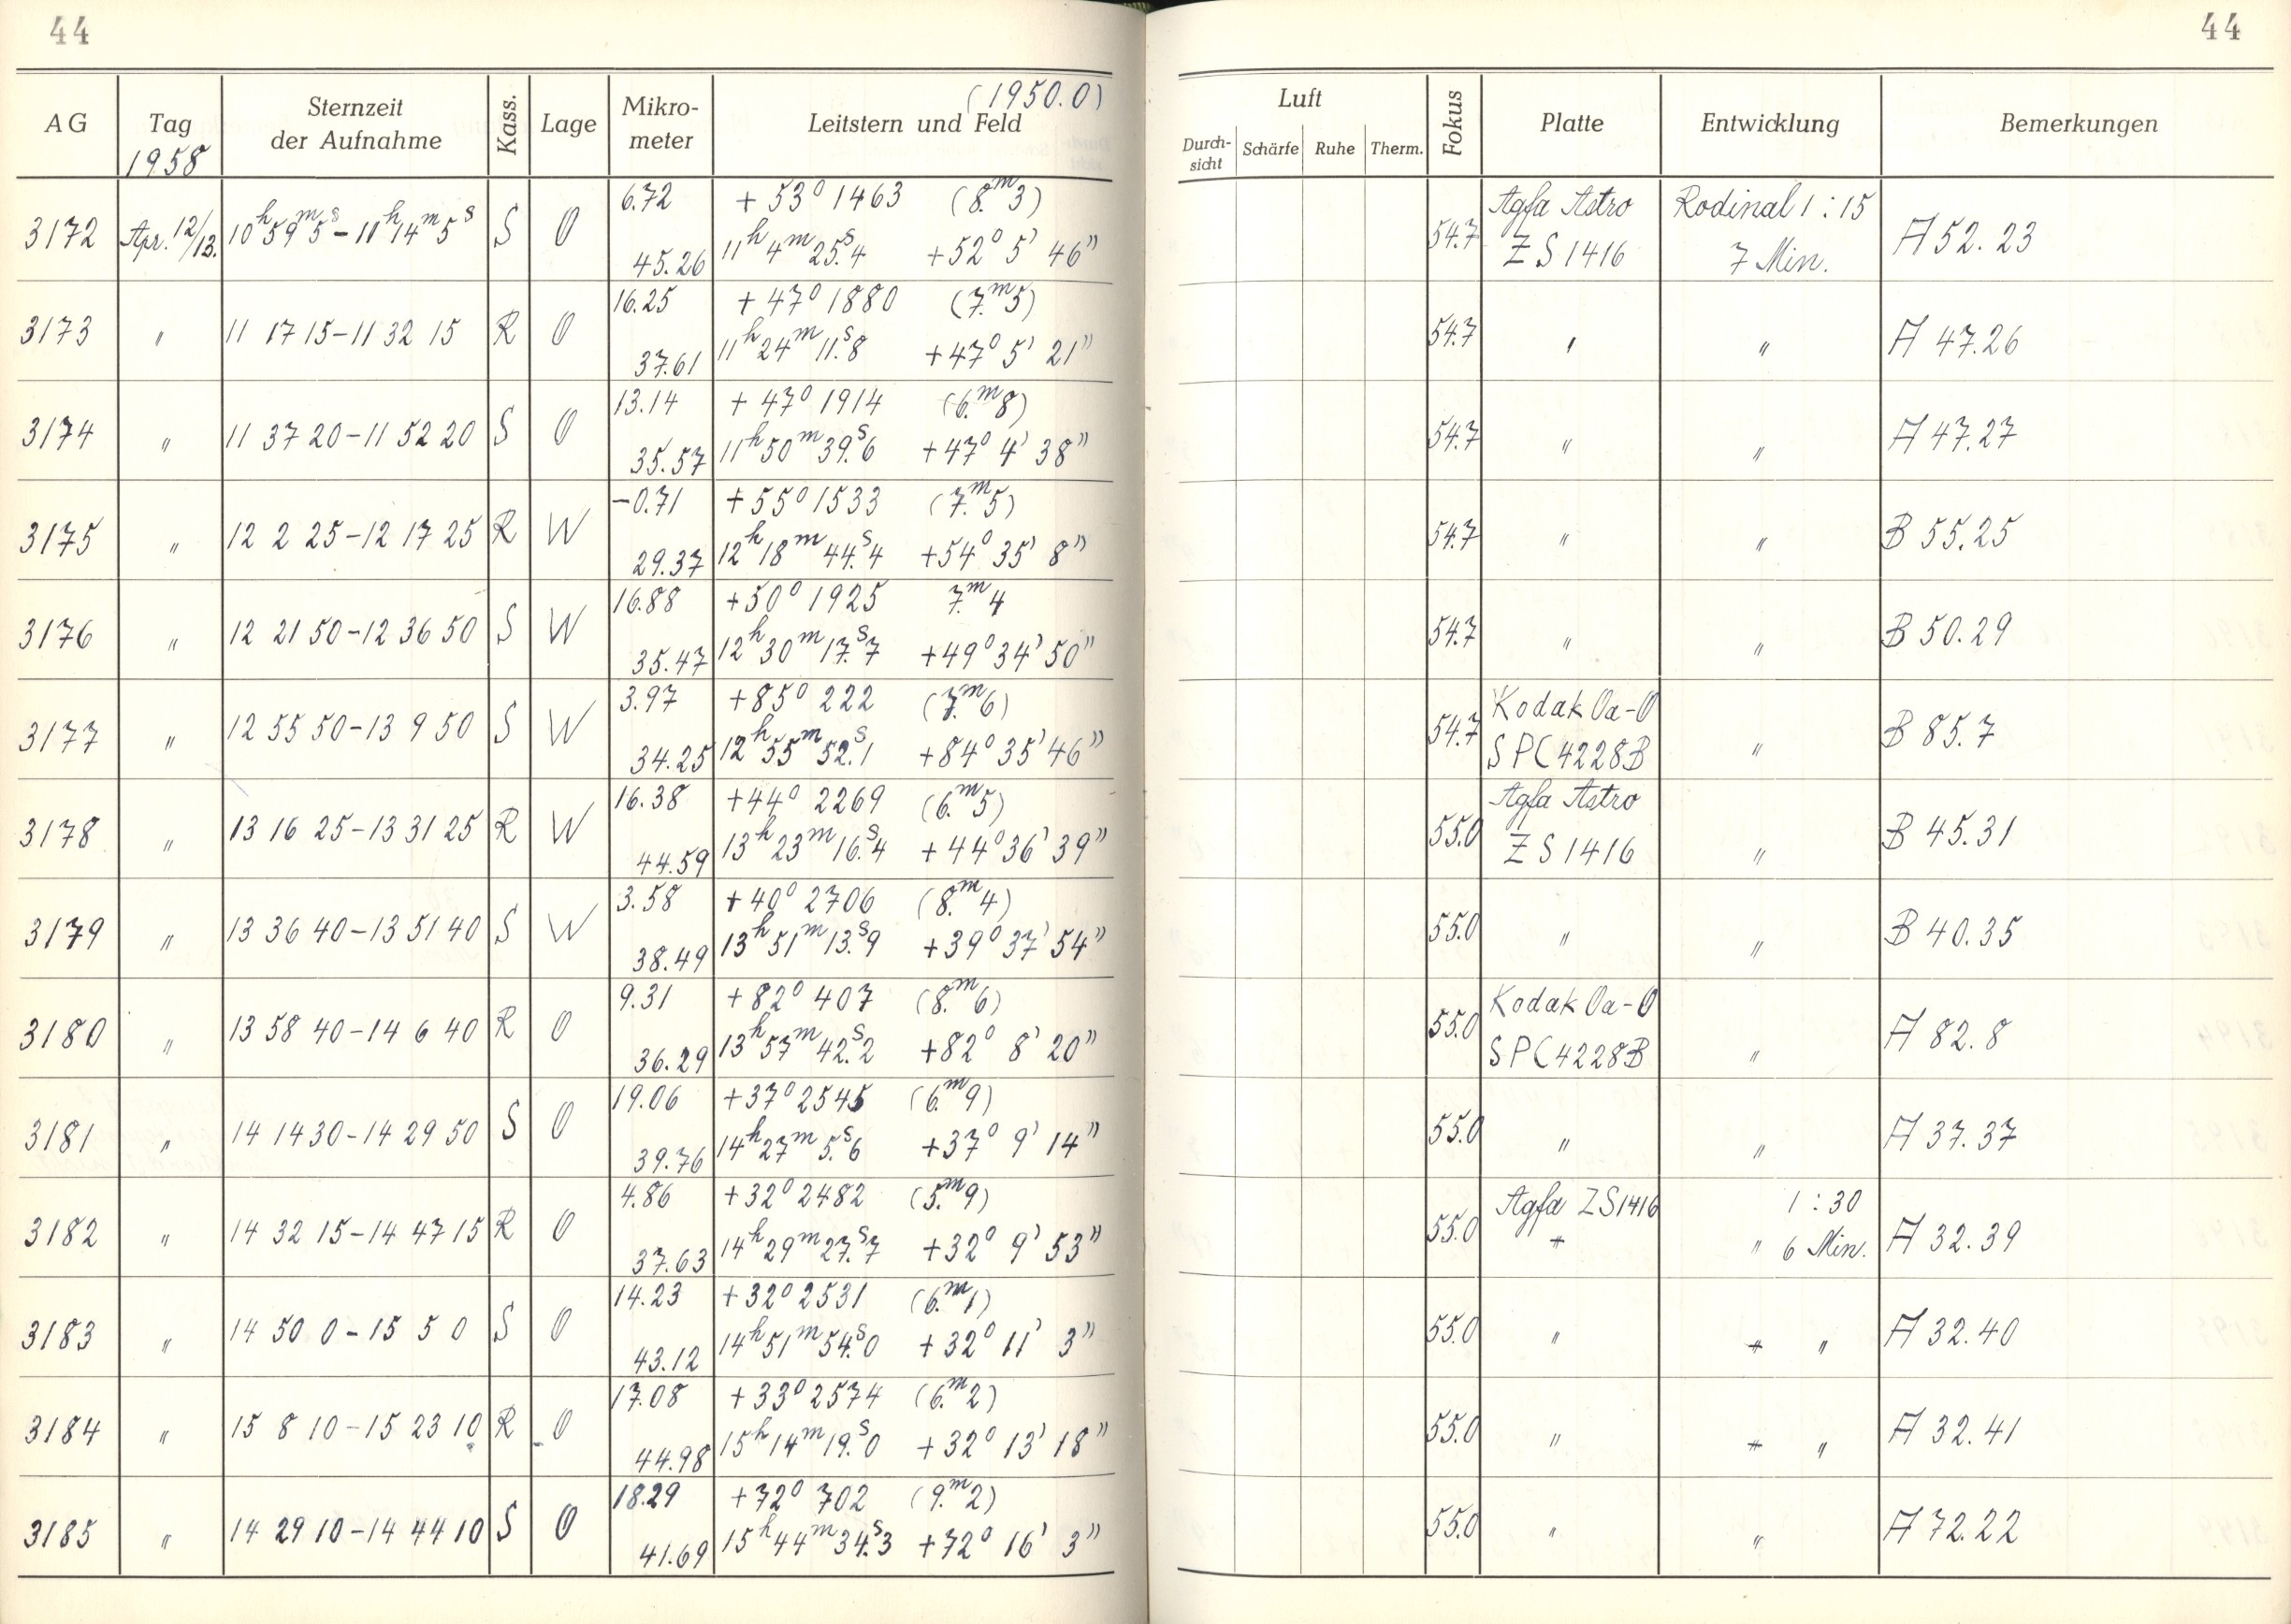 44
44
(1950.0)
AG Tag 1958 Sternzeit der Aufnahme Kass. Lage Mikro-meter Leitstern und Feld Luft Durch-sicht Schärfe Ruhe Therm. Fokus Platte Entwicklung Bemerkungen
6.72 + 53° 1463 (8.m3) Agfa Astro Rodinal 1:15
3172 Apr. 12/13. 10h 59m 5s – 11h 14m 5s S O 45.26 11h 4m 25.s4 +52° 5' 46" 54.7 ZS 1416 7 Min. A 52.23
16.25 + 47° 1880 (7.m5)
3173 " 11 17 15 – 11 32 15 R O 37.61 11h 24m 11.s8 +47° 5' 21" 54.7 " " A 47.26
13.14 + 47° 1914 (6.m8)
3174 " 11 37 20 – 11 52 20 S O 35.57 11h 50m 39.s6 +47° 4' 38" 54.7 " " A 47.27
-0.71 + 55° 1533 (7.m5)
3175 " 12 2 25 – 12 17 25 R W 29.37 12h 18m 44.s4 +54° 35' 8" 54.7 " " B 55.25
16.88 +50° 1925 7.m4
3176 " 12 21 50 – 12 36 50 S W 35.47 12h 30m 17.s7 +49° 34' 50" 54.7 " " B 50.29
3.97 +85° 222 (7.m6) Kodak Oa-O
3177 " 12 55 50 – 13 9 50 S W 34.25 12h 55m 52.s1 +84° 35' 46" 54.7 SPC4228B " B 85.7
16.38 +44° 2269 (6.m5) Agfa Astro
3178 " 13 16 25 – 13 31 25 R W 44.59 13h 23m 16.s4 +44° 36' 39" 55.0 ZS 1416 " B 45.31
3.58 +40° 2706 (8.m4)
3179 " 13 36 40 – 13 51 40 S W 38.49 13h 51m 13.s9 +39° 37' 54" 55.0 " " B 40.35
9.31 +82° 407 (8.m6) Kodak Oa-O
3180 " 13 58 40 – 14 6 40 R O 36.29 13h 57m 42.s2 +82° 8' 20" 55.0 SPC4228B " A 82.8
19.06 +37° 2545 (6.m9)
3181 " 14 14 30 – 14 29 50 S O 39.76 14h 27m 5.s6 +37° 9' 14" 55.0 " " A 37.37
4.86 +32° 2482 (5.m9) Agfa ZS1416 1:30
3182 " 14 32 15 – 14 47 15 R O 37.63 14h 29m 27.s7 +32° 9' 53" 55.0 " 6 Min. A 32.39
14.23 +32° 2531 (6.m1)
3183 " 14 50 0 – 15 5 0 S O 43.12 14h 51m 54.s0 +32° 11' 3" 55.0 " " A 32.40
17.08 +33° 2574 (6.m2)
3184 " 15 8 10 – 15 23 10 R O 44.98 15h 14m 19.s0 +32° 13' 18" 55.0 " " A 32.41
18.29 +72° 702 (9.m2)
3185 " 14 29 10 – 14 44 10 S O 41.69 15h 44m 34.s3 +72° 16' 3" 55.0 " " A 72.22